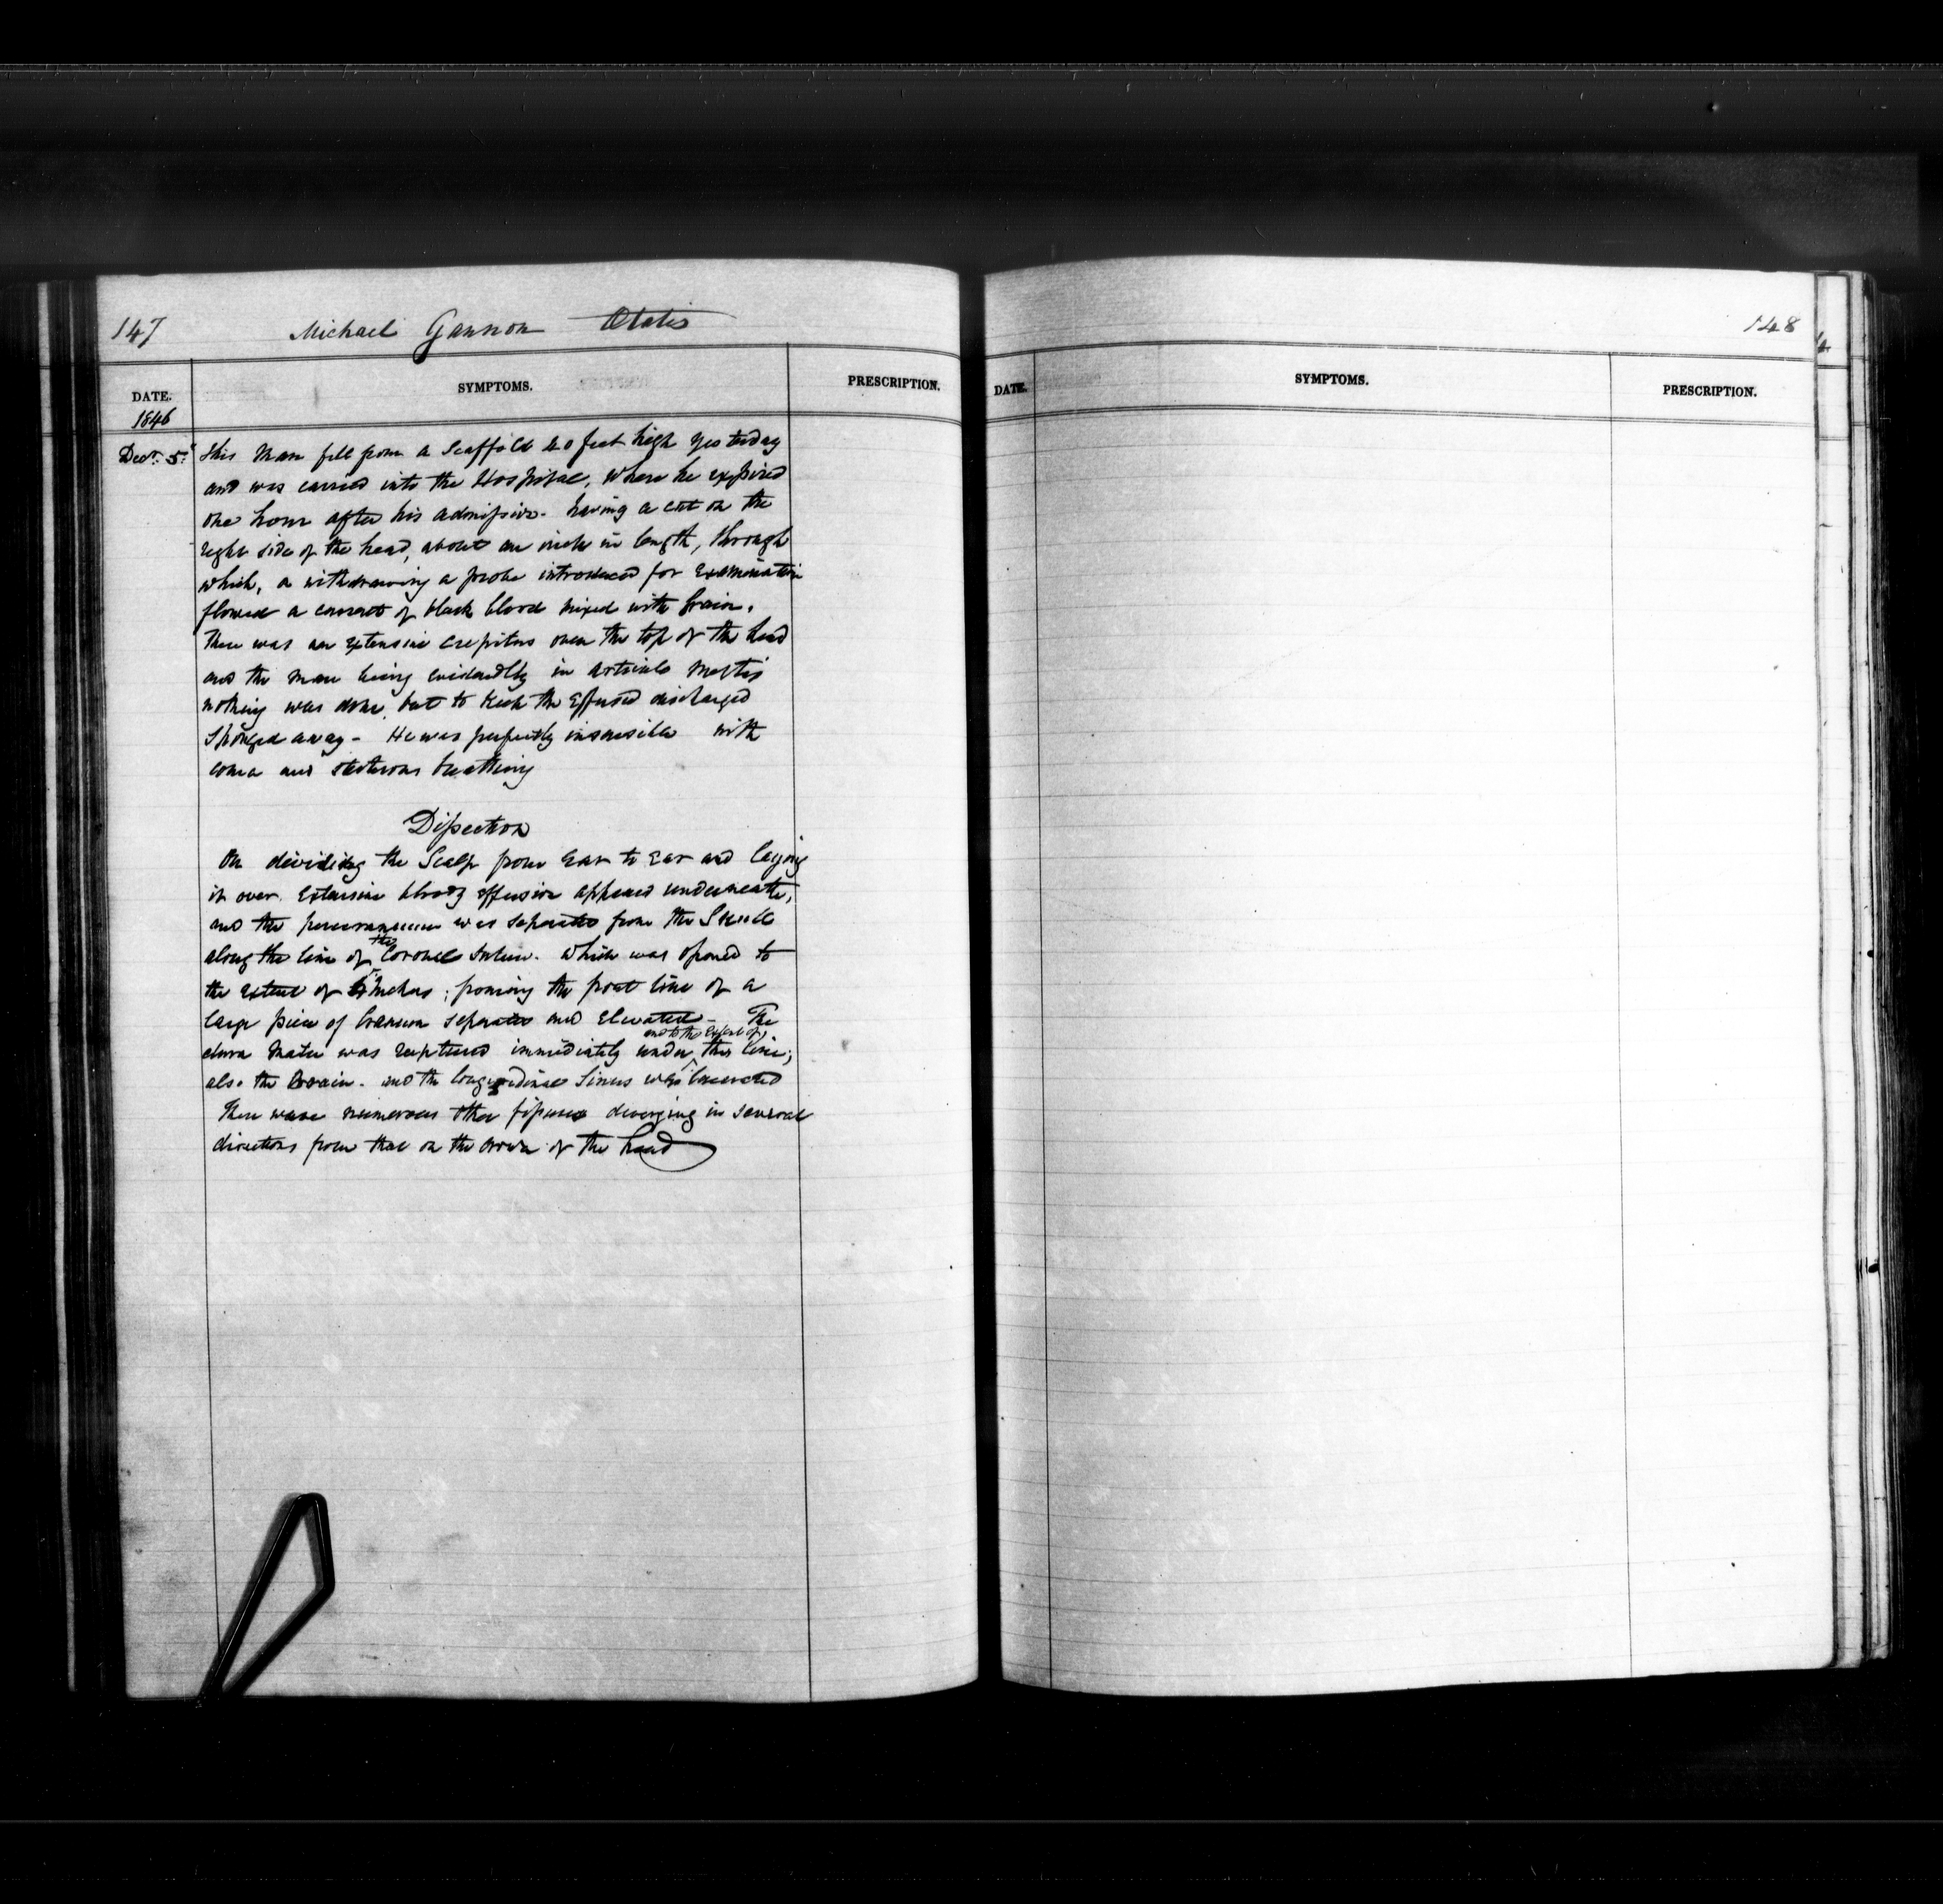 147 Michael Gannon Ætatis
DATE. SYMPTOMS. PRESCRIPTION.
1846
Decr. 5. This Man fell from a Scaffold 20 feet high yesterday
and was carried into the Hospital, where he expired
one hour after his admission - having a cut on the
right side of the head, about an inch in length, through
which, on withdrawing a probe introduced for Examination
flowed a current of black blood mixed with brain.
There was an extensive crepitus over the top of the head
and the man being evidently in articulo mortis
nothing was done, but to the Effused discharged
sponged away - He was perfectly insensible with
coma and stertorous breathing
Dissection
On dividing the Scalp from Ear to Ear and laying
it over. Extensive bloody effusion appeared underneath,
and the pericranium was separated from the Skull
along the line of the Coronal suture. which was opened to
the extent of inches; forming the front line of a
large piece of Cranium separated and Elevated - The
dura mater was ruptured immediately under and to the extent of this line;
also the brain - and the longitudinal Sinus was lacerated
There were numerous other fissures diverging in several
directions from that on the crown of the head
148
DATE. SYMPTOMS. PRESCRIPTION.